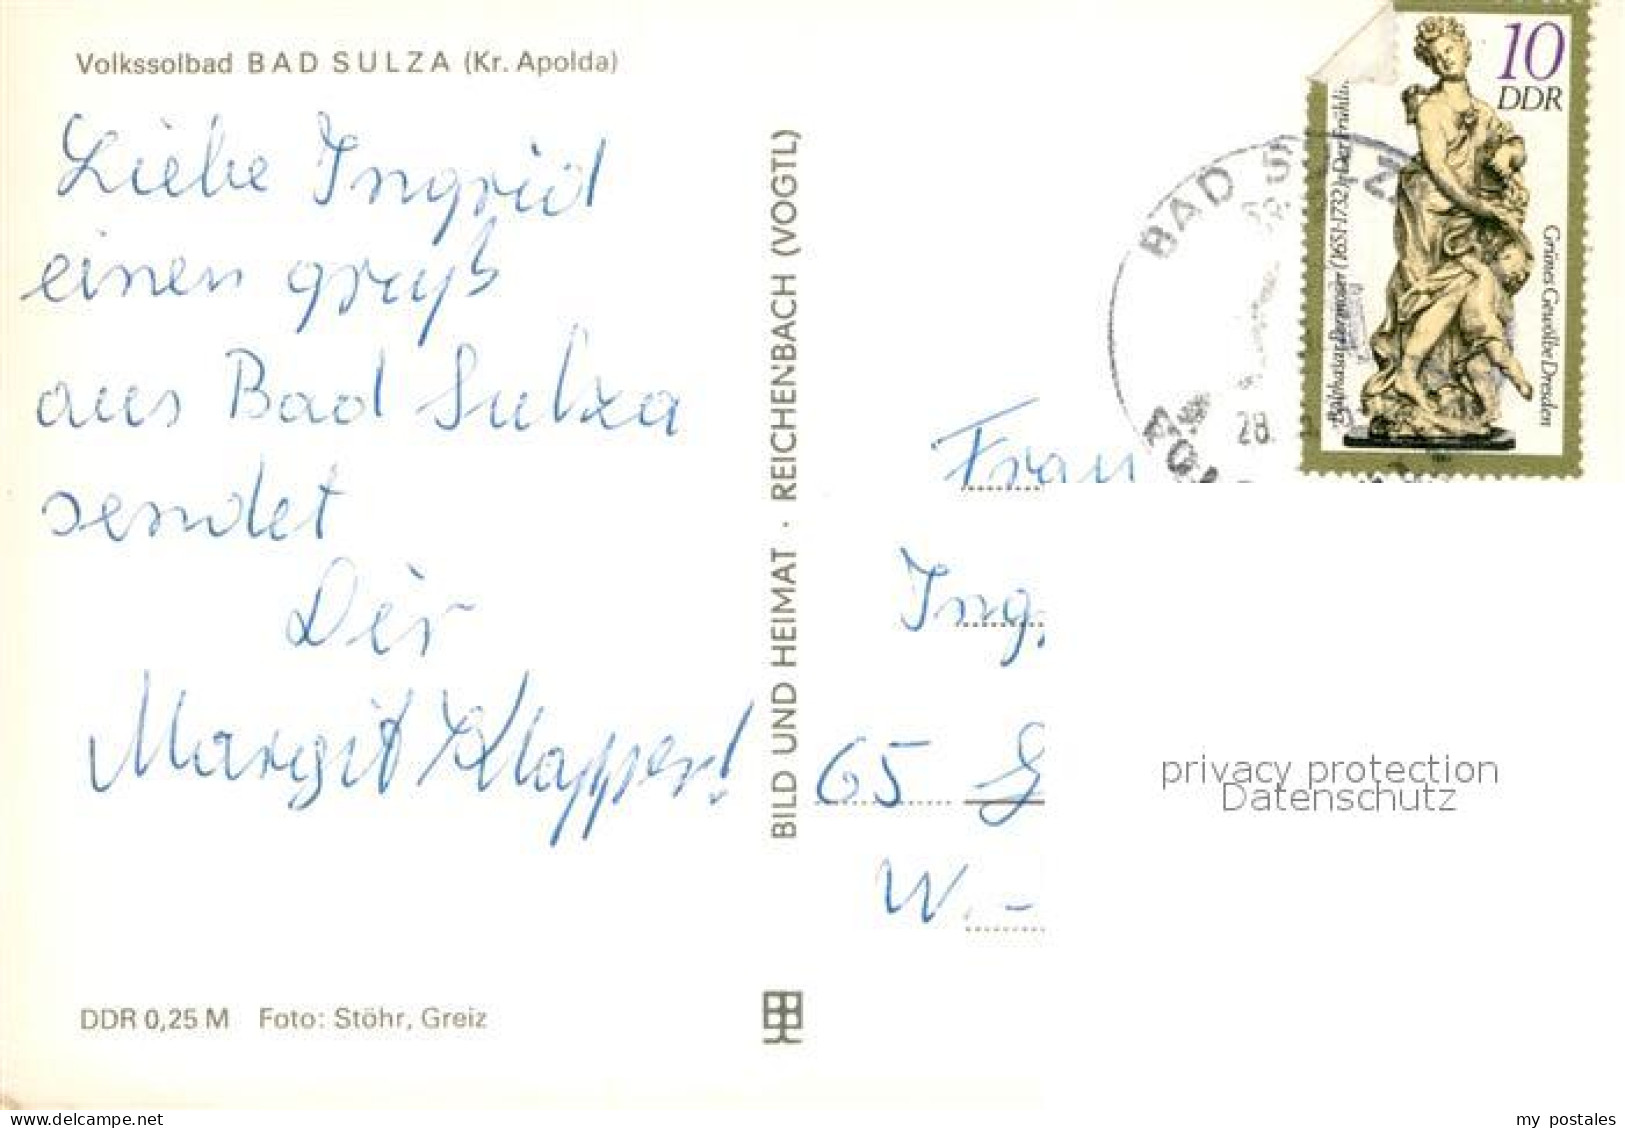 Volkssolbad BAD SULZA (Kr. Apolda)
Liebe Ingrid
einen gruß
aus Bad Sulza
sendet
Dir
Margit Klapper!
DDR 0,25 M Foto: Stöhr, Greiz
BILD UND HEIMAT · REICHENBACH (VOGTL)
10
DDR
Balthasar Permoser (1651-1732)
Grünes Gewölbe Dresden
BAD
28.
Frau
Ing.
65 G
W.-
privacy protection
Datenschutz
www.delcampe.net
my_postales